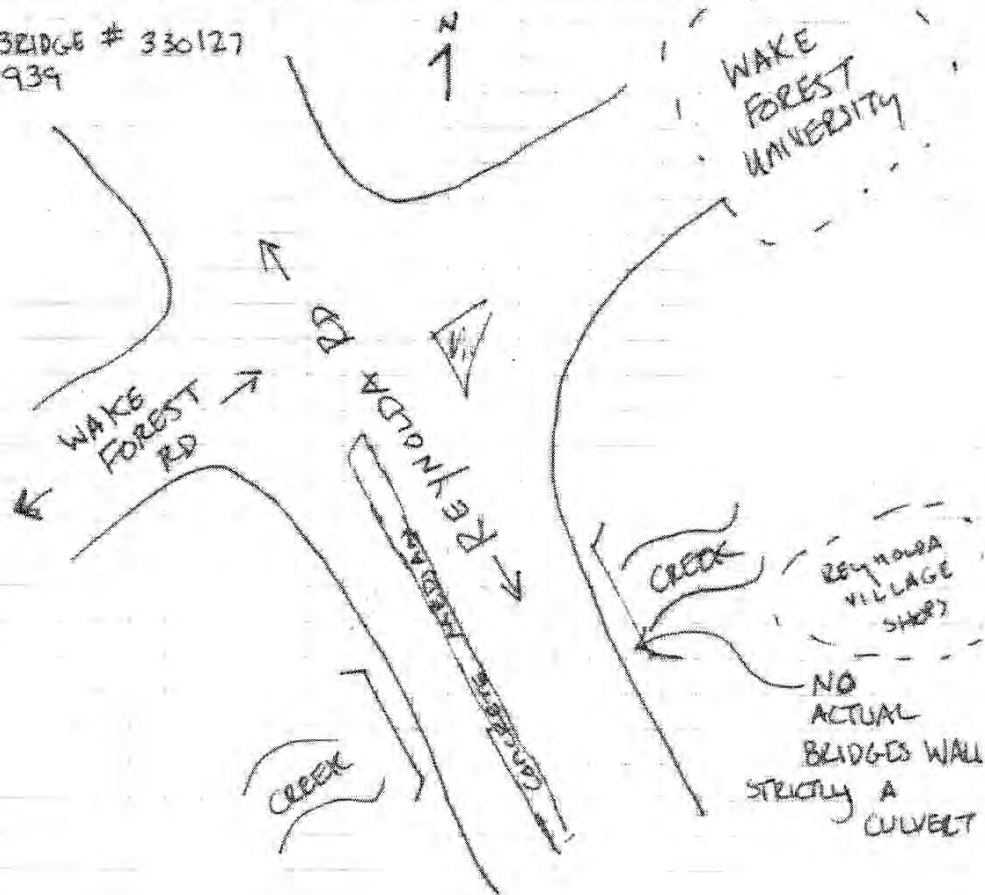 BRIDGE # 330127
939
N
WAKE
FOREST
UNIVERSITY
REYNOLDA RD
WAKE
FOREST
RD
CONCRETE MEDIAN
CREEK
REYNOLDA
VILLAGE
SHOPS
NO
ACTUAL
BRIDGES WALL
STRICTLY A
CULVERT
CREEK